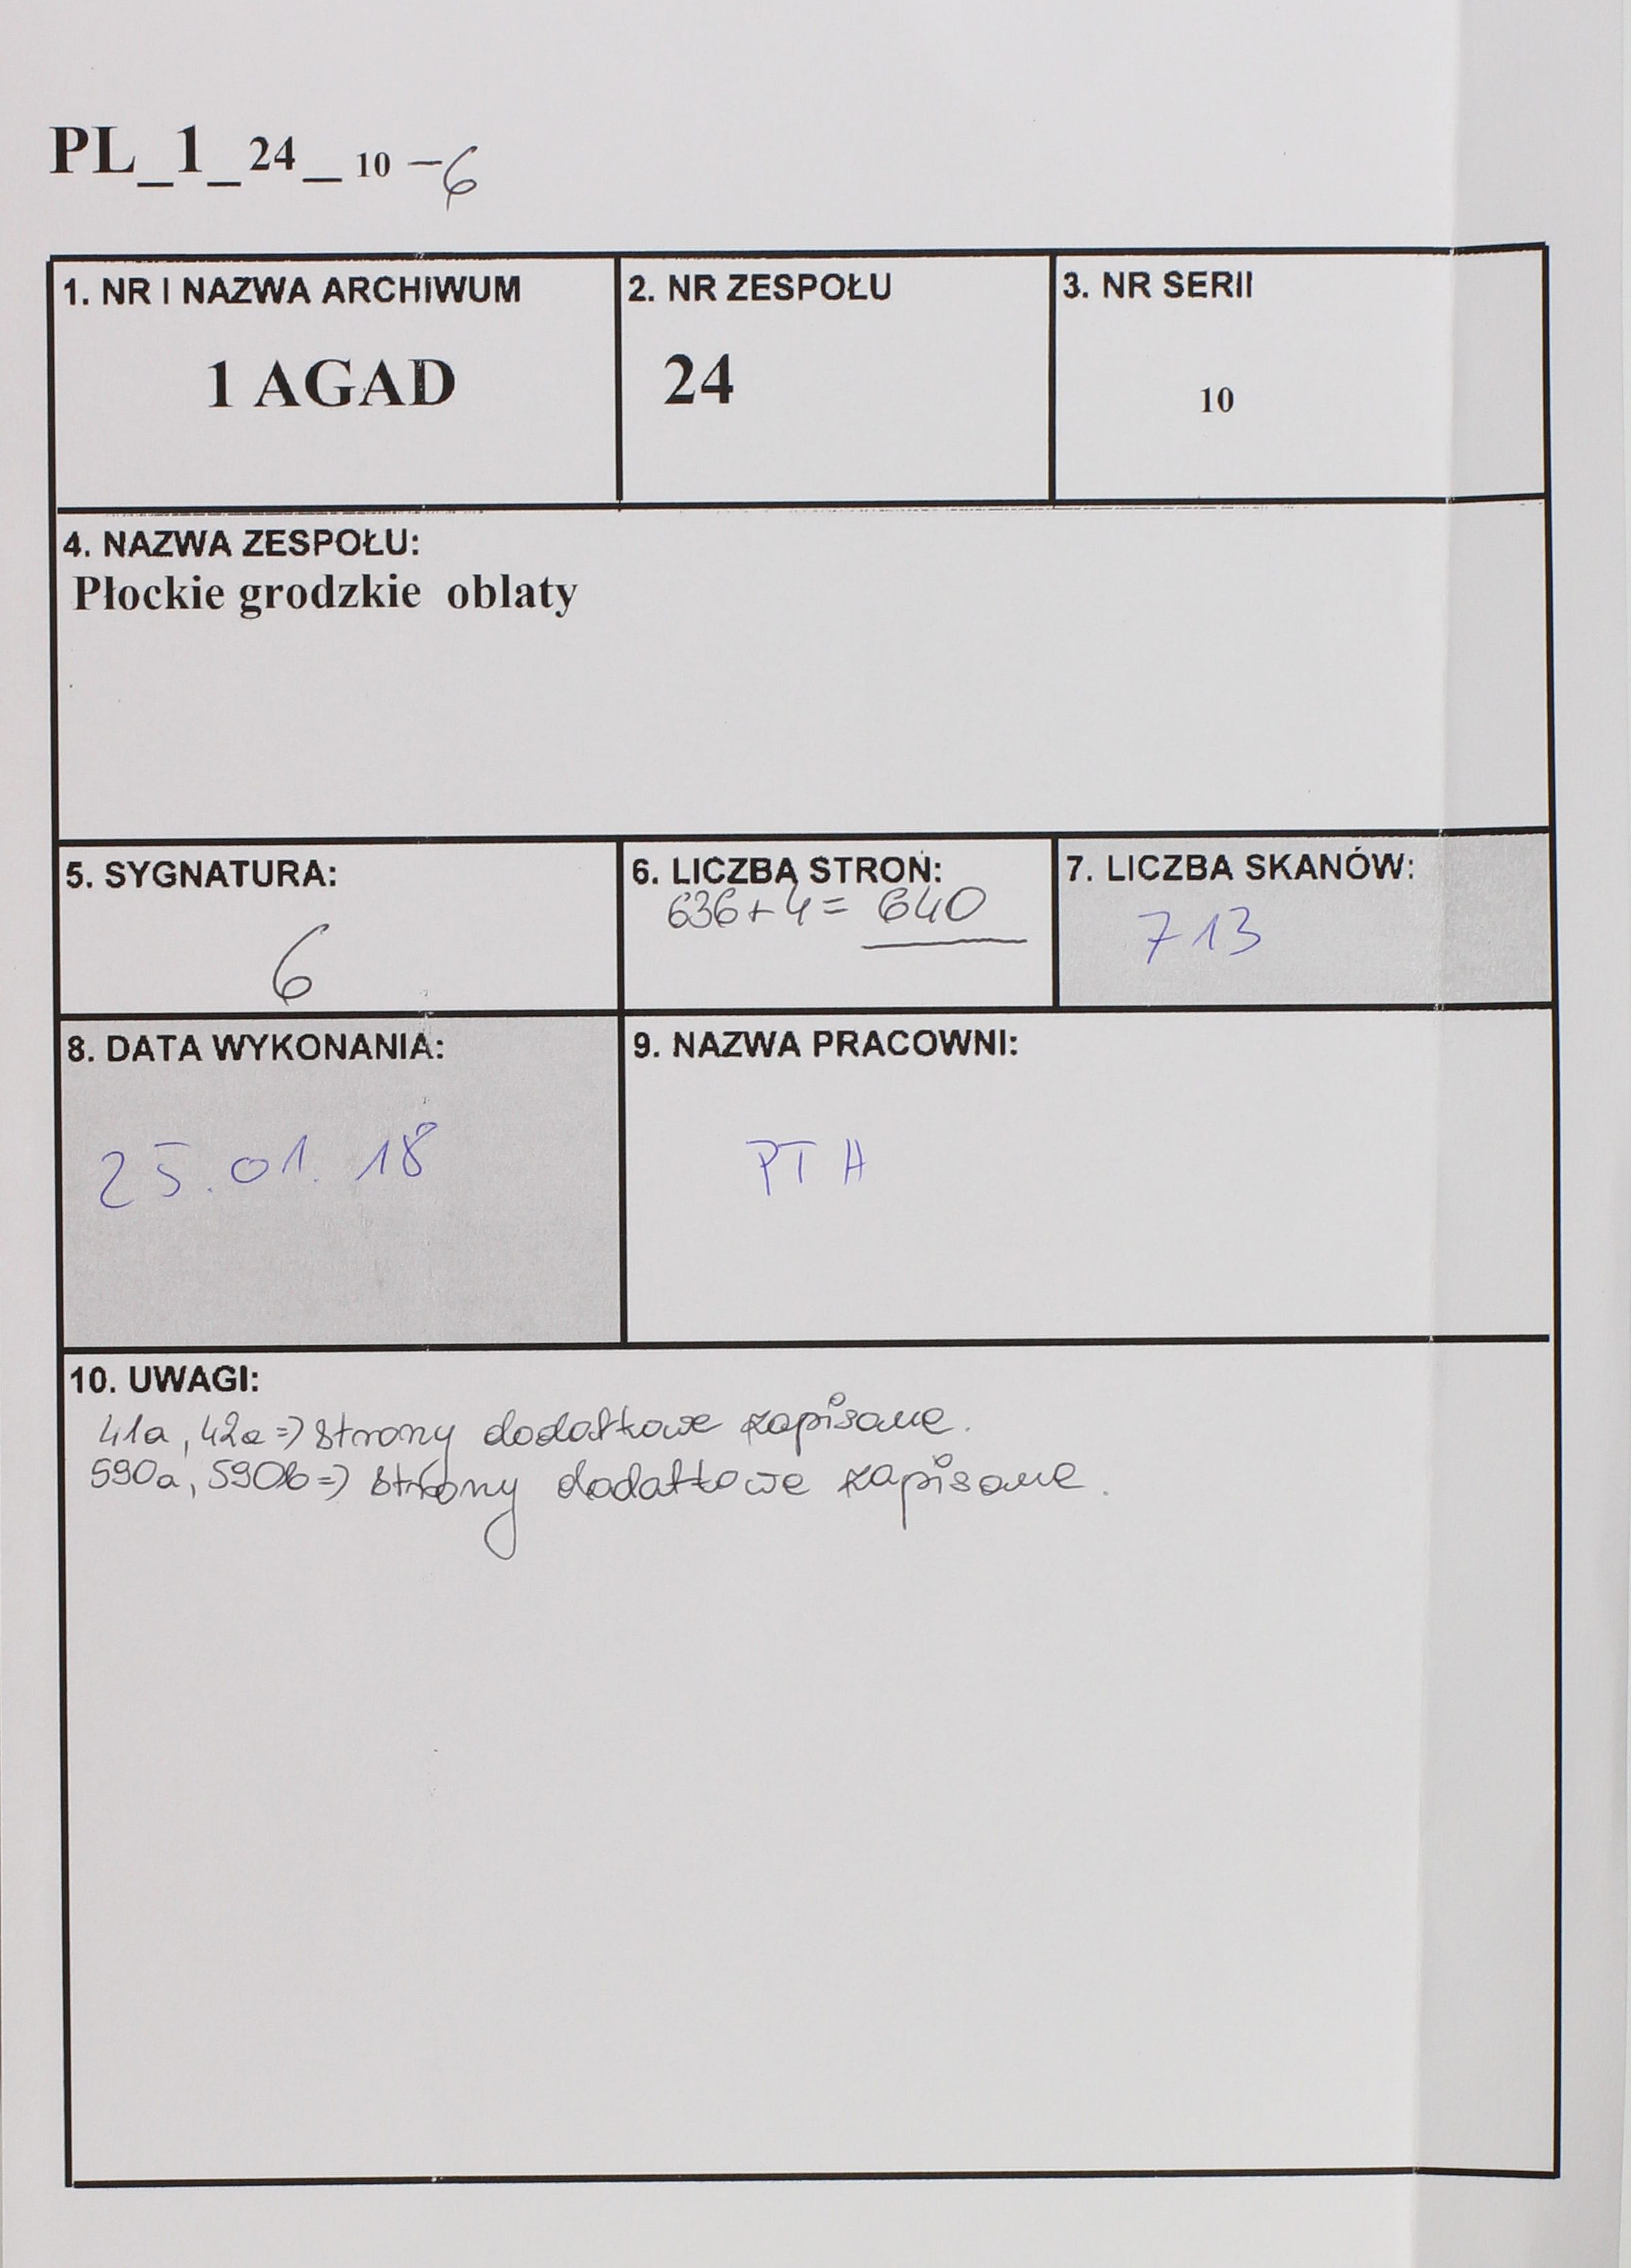 PL_1_24_10-6
1. NR I NAZWA ARCHIWUM
1 AGAD
2. NR ZESPOŁU
24
3. NR SERII
10
4. NAZWA ZESPOŁU:
Płockie grodzkie oblaty
5. SYGNATURA:
6
6. LICZBA STRON:
636+4= 640
7. LICZBA SKANÓW:
713
8. DATA WYKONANIA:
25.01.18
9. NAZWA PRACOWNI:
PTH
10. UWAGI:
41a, 42a => strony dodatkowe zapisane.
590a, 590b => strony dodatkowe zapisane.